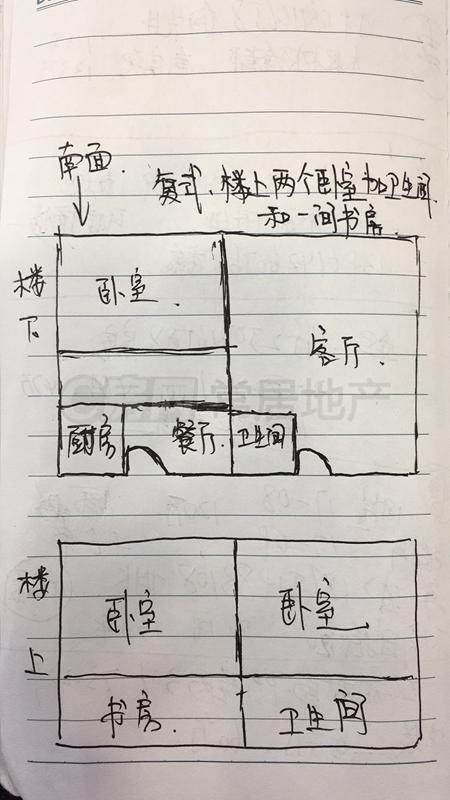 南面.
复式,楼上两个卧室加卫生间
和一间书房.
楼下
卧室.
客厅.
厨房
餐厅.
卫生间
楼上
卧室
卧室
书房.
卫生间